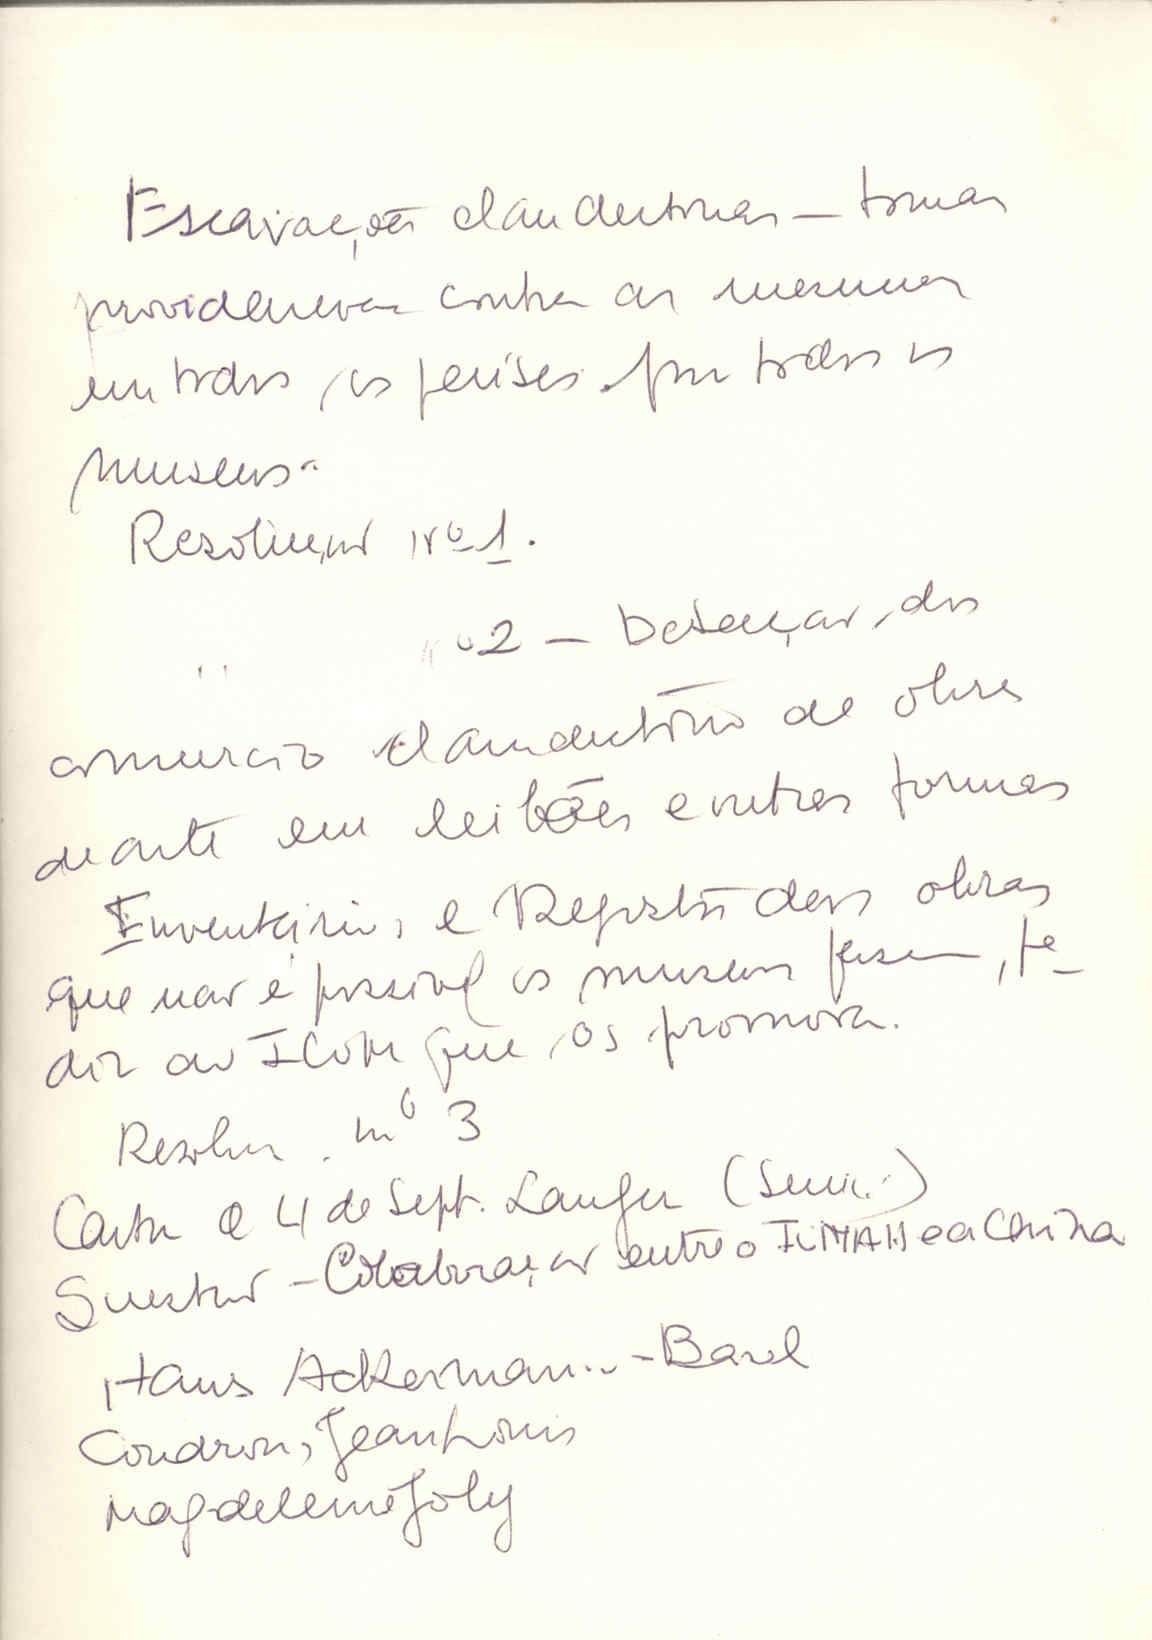 Escavações clandestinas – tomar
providencias contra as mesmas
em todos os países por todos os
museus.
Resolução nº 1.
" nº 2 – Detenção do
comercio clandestino de obras
de arte em leilões e outras formas
Inventário, e Registro das obras
que não é possivel os museus fazerem, pe-
dir ao ICOM que os promova.
Resolu. nº 3
Carta 4 de Sept.
Colaboração entre o e a China
Hans Ackermann – Basel
Coudron, Jean Louis
Magdeleine Joly